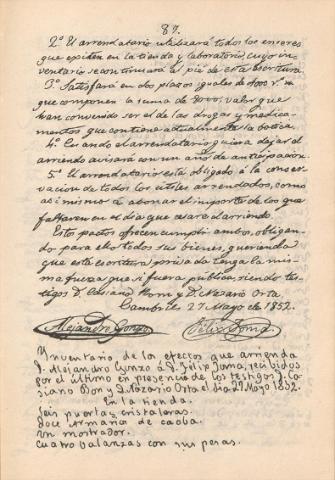 87.
2º El arrendatario utilizará todos los enseres
que existen en la tienda y laboratorio, cuyo in-
ventario se continuará a pié de esta escritura.
3º Satisfará en dos plazos iguales de
que componen la suma de valor que
han convenido ser el de las drogas y medica-
mentos que contiene actualmente la botica.
4º Cuando el arrendatario quiera dejar el
arriendo avisará con un año de anticipacion.
5º El arrendatario está obligado á la conser-
vacion de todos los útiles arrendados, como
asi mismo á abonar el importe de los que
faltaren en el dia que cesare el arriendo.
Estos pactos ofrecen cumplir ambos, obligan-
do para ello todos sus bienes, queriendo
que esta escritura privada tenga la mis-
ma fuerza que si fuera pública, siendo tes-
tigos D. Casiano Born y D. Nazario Orta.
Cambrils 27 Mayo de 1852.
Alejandro Gonzo Félix Joma
Ynventario de los efectos que arrienda
D. Alejandro Gonzo á D. Felix Joma, recibidos
por el último en presencia de los testigos D. Ca-
siano Born y D. Nazario Orta el dia 27 Mayo 1852.
En la tienda.
Seis puertas cristaleras.
Doce Armarios de caoba.
Un mostrador.
Cuatro balanzas con sus pesas.